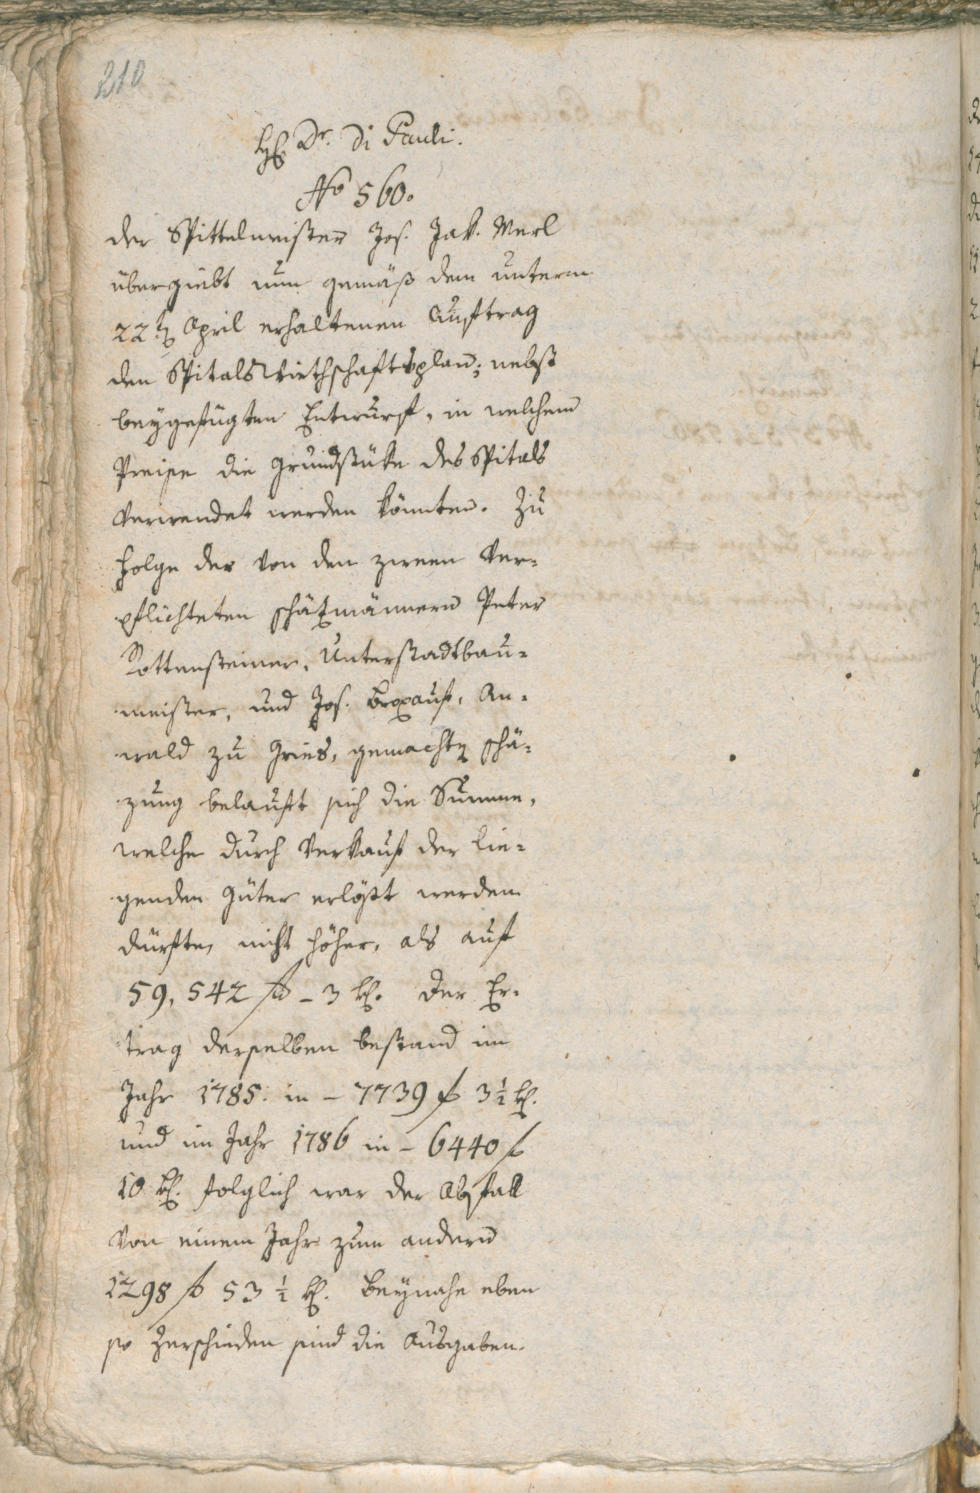 210
H. Dr. Di Pauli.
No 560.
der Spittelmeister Jos. Jak. Merl
übergiebt nun gemäß dem unterm
22ten April erhaltenen Auftrag
den Spitals Wirthschaftsplan; nebst
beygefügten Entwurf, in welchem
Preise die Grundstüke des Spitals
verwendet werden könnten. Zu
Folge der von den zween Ver-
pflichteten Schätzmännern Peter
Rottensteiner, Unterstadtbau-
meister, und Jos. An-
wald zu Gries, gemachten Schä-
zung belauft sich die Summe,
welche durch Verkauf der lie-
genden Güter erlößt werden
dürfte, nicht höher, als auf
59,542 f – 3 kr. Der Er-
trag derselben bestand im
Jahr 1785. in – 7739 f 3½ kr.
und im Jahr 1786 in – 6440 f
10 kr. folglich war der Abfall
von einem Jahr zum andern
1298 f 53½ kr. Beynahe eben
so verschieden sind die Ausgaben.